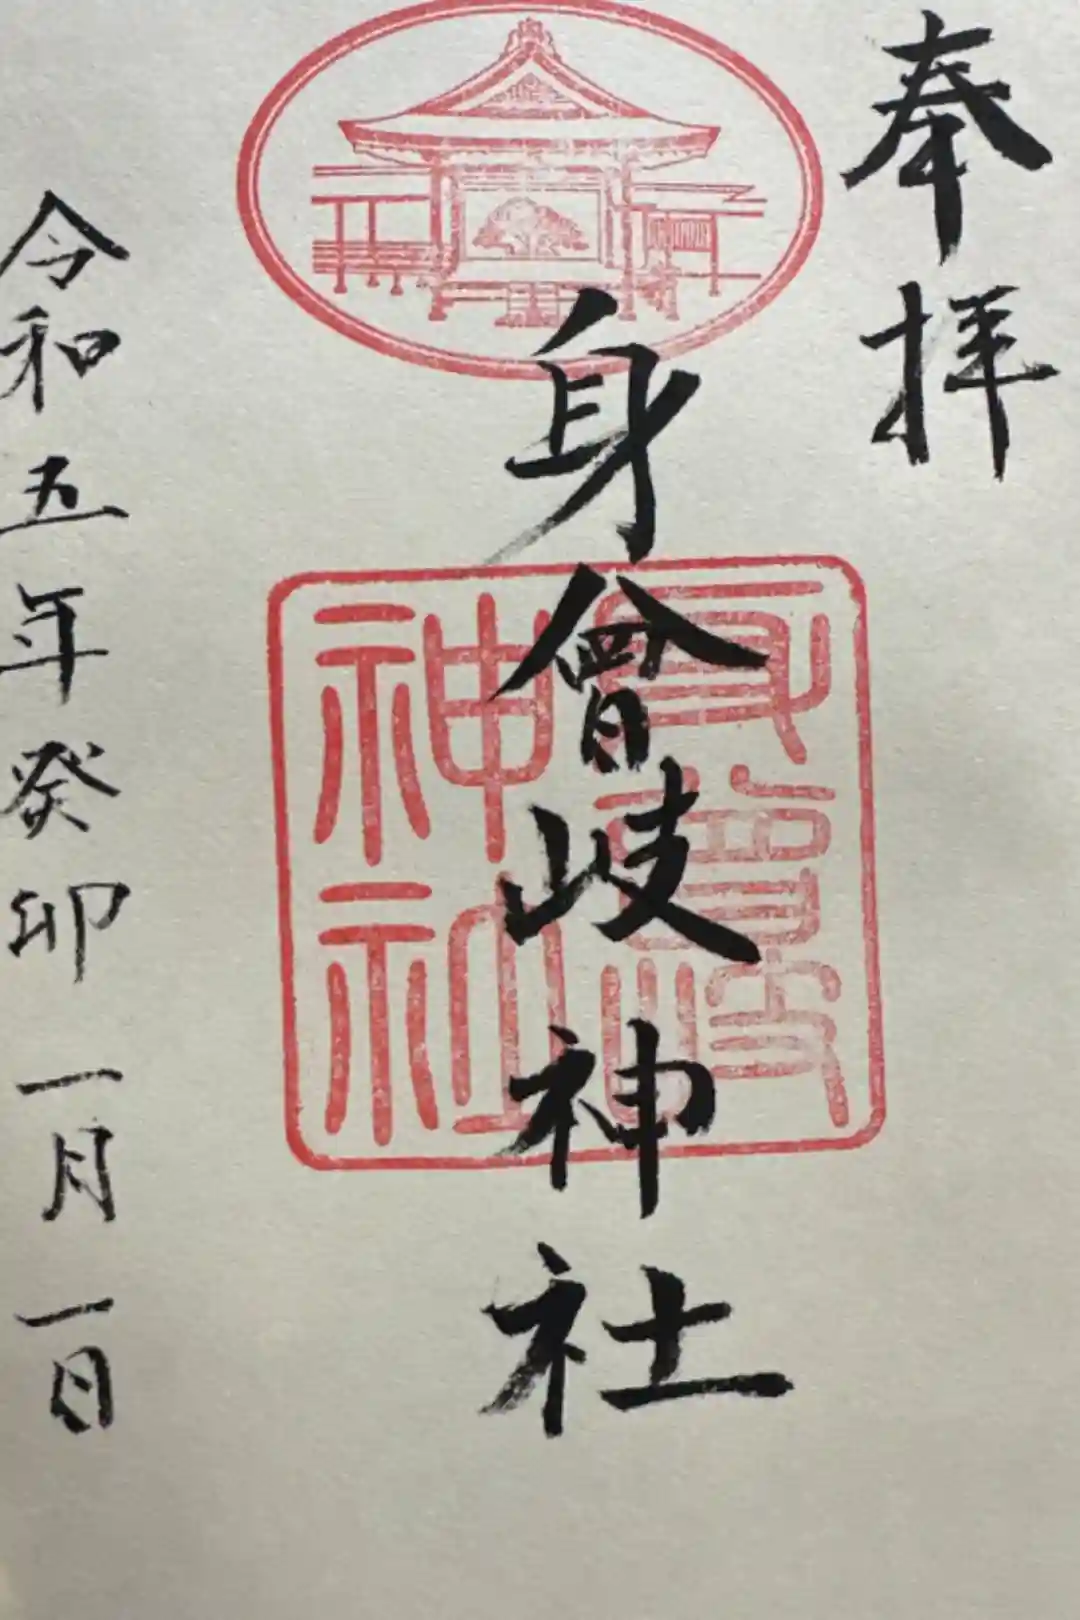 奉拝
身曾岐神社
身曾岐神社
令和五年癸卯一月一日